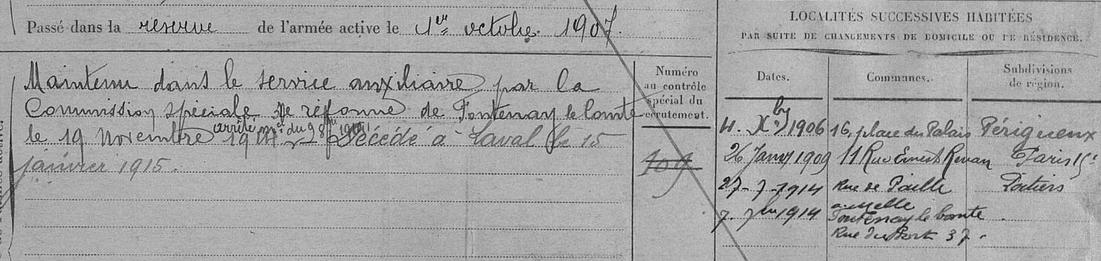 Passé dans la reserve de l'armée active le 1er octobre 1907.
Maintenu dans le service auxiliaire par la
Commission spéciale de réforme de Fontenay le Comte
le 19 Novembre 1914 Décédé à Laval le 15
janvier 1915.
Numéro
au contrôle
spécial du
recrutement.
109
LOCALITÉS SUCCESSIVES HABITÉES
PAR SUITE DE CHANGEMENTS DE DOMICILE OU DE RÉSIDENCE.
Dates. Communes. Subdivisions
de région.
4. Xbre 1906 16, place du Palais Périgueux
26 Janv 1909 11 Rue Ernest Renan Paris 15e
27-7-1914 Rue de Paille Poitiers
7. 7bre 1914 Fontenay le Comte
Rue du Port 37.